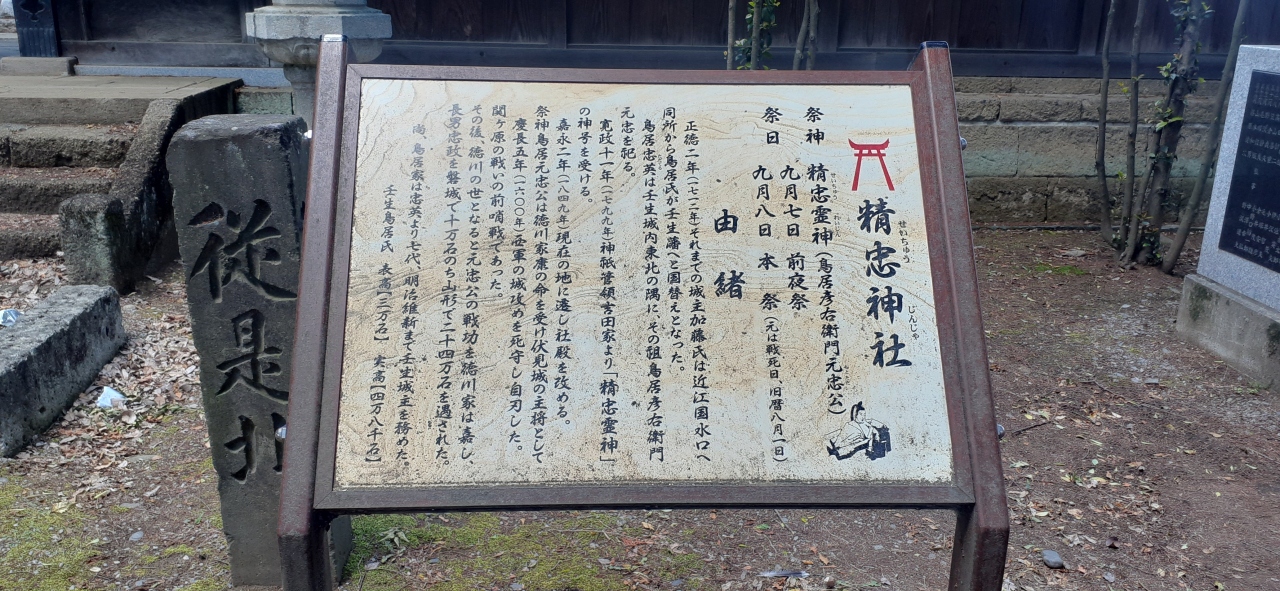 精忠神社
せいちゅう
じんじゃ
祭神 精忠霊神(鳥居彦右衛門元忠公)
祭日 九月七日 前夜祭
九月八日 本 祭(元は戦死日、旧暦八月一日)
由緒
正徳二年(一七一二年それまでの城主加藤氏は近江国水口へ
同所から鳥居氏が壬生藩へと国替えとなった。
鳥居忠英は壬生城内東北の隅に、その祖鳥居彦右衛門
元忠を祀る。
寛政十一年(一七九九年)神祇管領吉田家より「精忠霊神」
の神号を受ける。
嘉永二年(一八四九年)現在の地に遷し社殿を改める。
祭神鳥居元忠公は徳川家康の命を受け伏見城の主将として
慶長五年(一六〇〇年)西軍の城攻めを死守し自刃した。
関ヶ原の戦いの前哨戦であった。
その後、徳川の世となると元忠公の戦功を徳川家は嘉し、
長男忠政を磐城へ十万石のち山形で二十四万石を遇された。
尚、鳥居家は忠英より七代、明治維新まで壬生城主を務めた。
壬生鳥居氏 表高[三万石] 実高[四万八千石]
従是北